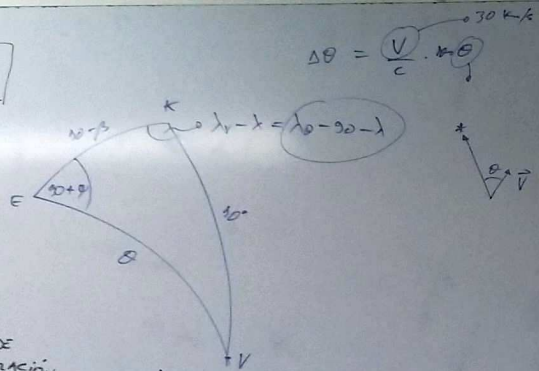 30 Km/s
Δθ = V/c · κ θ
K
90-β
λv - λ = λ⊙ - 90 - λ
E
90+φ
90°
θ
V
* θ V⃗
DE